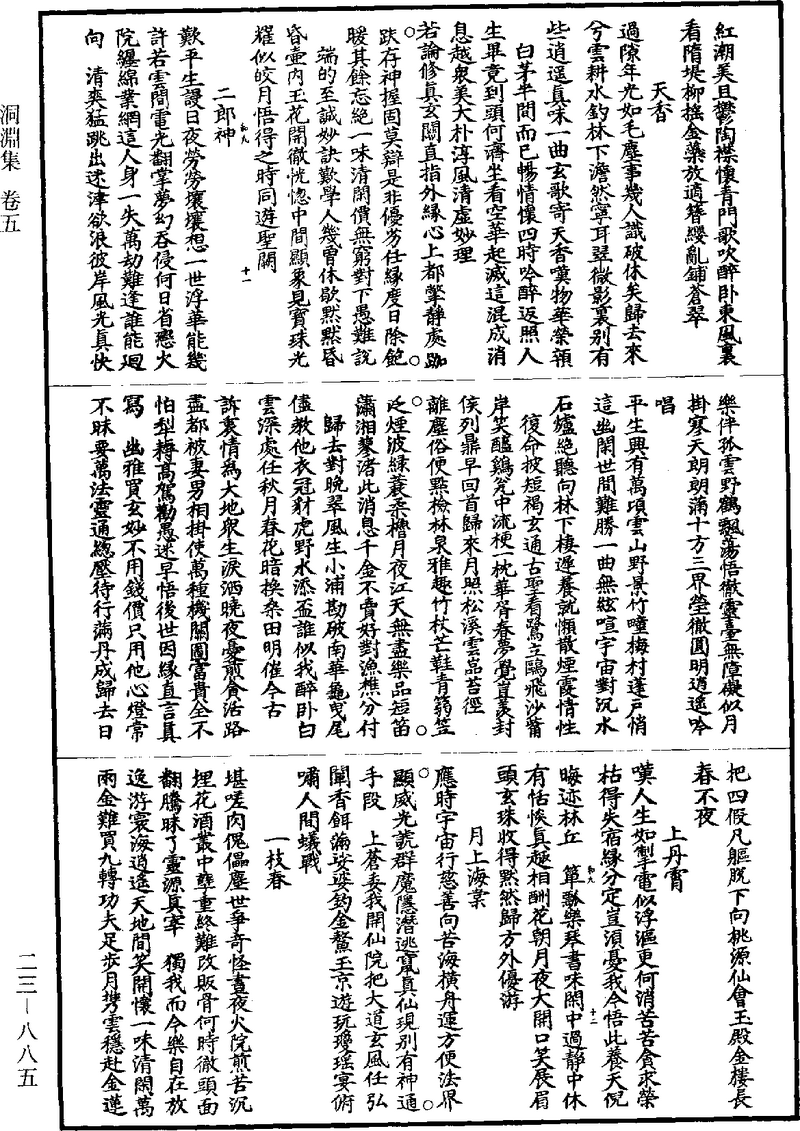 紅潮美且鬱陶襟懷青門歌吹醉卧東風裏
看隋堤柳搖金藥放適簪纓亂鋪蒼翠
天香
過隙年光如毛塵事幾人識破休矣歸去來
兮雲耕水釣林下澹然寧耳翠微影裏別有
些逍遥真味一曲玄歌寄天香嘆物華榮領
白茅半間而已暢情懷四時吟醉返照人
生畢竟到頭何濟坐看空華起滅這混成消
息越衆美大朴淳風清虛妙理
若論修真玄關直指外緣心上都擎静處跏
趺存神握固莫辯是非優劣任緣度日除飽
暖其餘忘絶一味清閑價無窮對下愚難説
端的至誠妙訣歎學人幾曾休歇默默昏
昏壺内玉花開徹恍惚中間顯象見寶珠光
耀似皎月悟得之時同遊聖闕
二郎神
歎平生謾日夜勞勞攘攘想一世浮華能幾
許若雲間電光翻掌夢幻吞侵何日省戀火
院纏綿業網這人身一失萬劫難逢誰能迴
向　清爽猛跳出迷津欲浪彼岸風光真快
樂伴孤雲野鶴飄蕩悟徹靈臺無障礙似月
掛寒天朗朗滿十方三界瑩徹圓明逍遥吟
唱
平生興有萬頃雲山野景竹疃梅村蓬戸悄
這幽閑世間難勝一曲無絃喧宇宙對沉水
石爐絶聽向林下棲遲養就懶散煙霞情性
復命披短褐玄通古聖看鷺立鷗飛沙觜
岸笑醯鷄瓮中流梗一枕華胥春夢覺豈羡封
侯列鼎早回首歸來月照松溪雲晶苔徑
離塵俗便點檢林泉雅趣竹杖芒鞋青篛笠
泛煙波緑蓑柔櫓月夜江天無盡樂品短笛
瀟湘蓼渚此消息千金不賣好對漁樵分付
歸去對晚翠風生小浦勘破南華龜曳尾
儘教他衣冠豺虎野水添盃誰似我醉卧白
雲深處任秋月春花暗换桑田明催今古
訴衷情爲大地衆生淚洒曉夜憂煎貪活路
盡都被妻男相掛使萬種機關圖富貴全不
怕犁耕高駕勸愚迷早悟後世因緣直言真
寫　幽雅買玄妙不用錢價只用他心燈常
不昧要萬法靈通總壓待行滿丹成歸去日
把四假凡軀脱下向桃源仙會玉殿金樓長
春不夜
上丹霄
嘆人生如掣電似浮漚更何消苦苦貪求榮
枯得失宿緣分定豈須憂我今悟此養天倪
晦迹林丘　簞瓢樂琴書味閑中過静中休
有恬惔真趣相酬花朝月夜大開口笑展眉
頭玄珠收得默然歸方外優游
月上海棠
應時宇宙行慈善向苦海横舟運方便法界
顯威光諕群魔隱潛逃竄真仙現别有神通
手段　上蒼委我開仙院把大道玄風任弘
闡香餌滿娑婆釣金鰲玉京遊玩瓊瑶宴俯
嘯人間蟻戰
一枝春
堪嗟肉傀儡塵世爭奇怪晝夜火院煎苦沉
埋花酒叢中孽重終難改販骨何時徹頭面
翻騰昧了靈源真宰　獨我而今樂自在放
逸游寰海逍遥天地間笑開懷一味清閑萬
兩金難買九轉功夫足步月携雲穩赴金蓮
洞淵集　卷五
二三—八八五